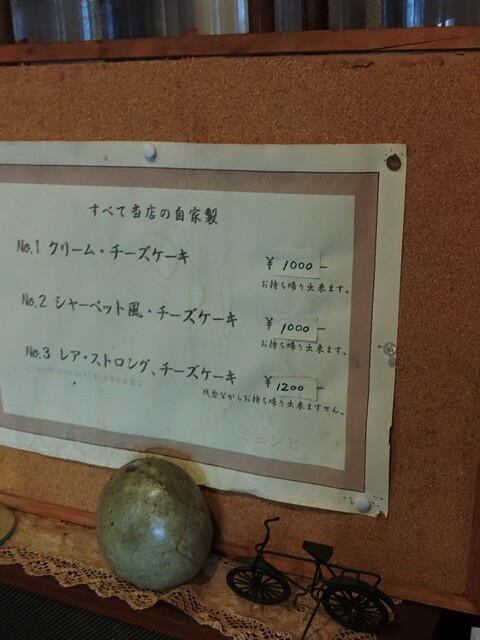 すべて当店の自家製
No.1 クリーム・チーズケーキ ¥1000−
お持ち帰り出来ます。
No.2 シャーベット風・チーズケーキ ¥1000−
お持ち帰り出来ます。
No.3 レア・ストロング、チーズケーキ ¥1200
残念ながらお持ち帰り出来ません。